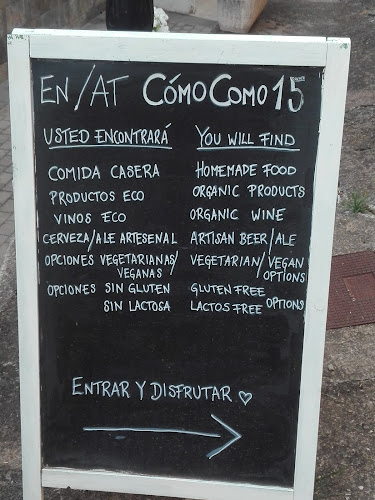 EN/AT CÓMOCOMO15
USTED ENCONTRARÁ YOU WILL FIND
COMIDA CASERA HOMEMADE FOOD
PRODUCTOS ECO ORGANIC PRODUCTS
VINOS ECO ORGANIC WINE
CERVEZA/ALE ARTESENAL ARTISAN BEER/ALE
OPCIONES VEGETARIANAS/ VEGETARIAN/VEGAN
VEGANAS OPTIONS
OPCIONES SIN GLUTEN GLUTEN FREE
SIN LACTOSA LACTOS FREE OPTIONS
ENTRAR Y DISFRUTAR ♡